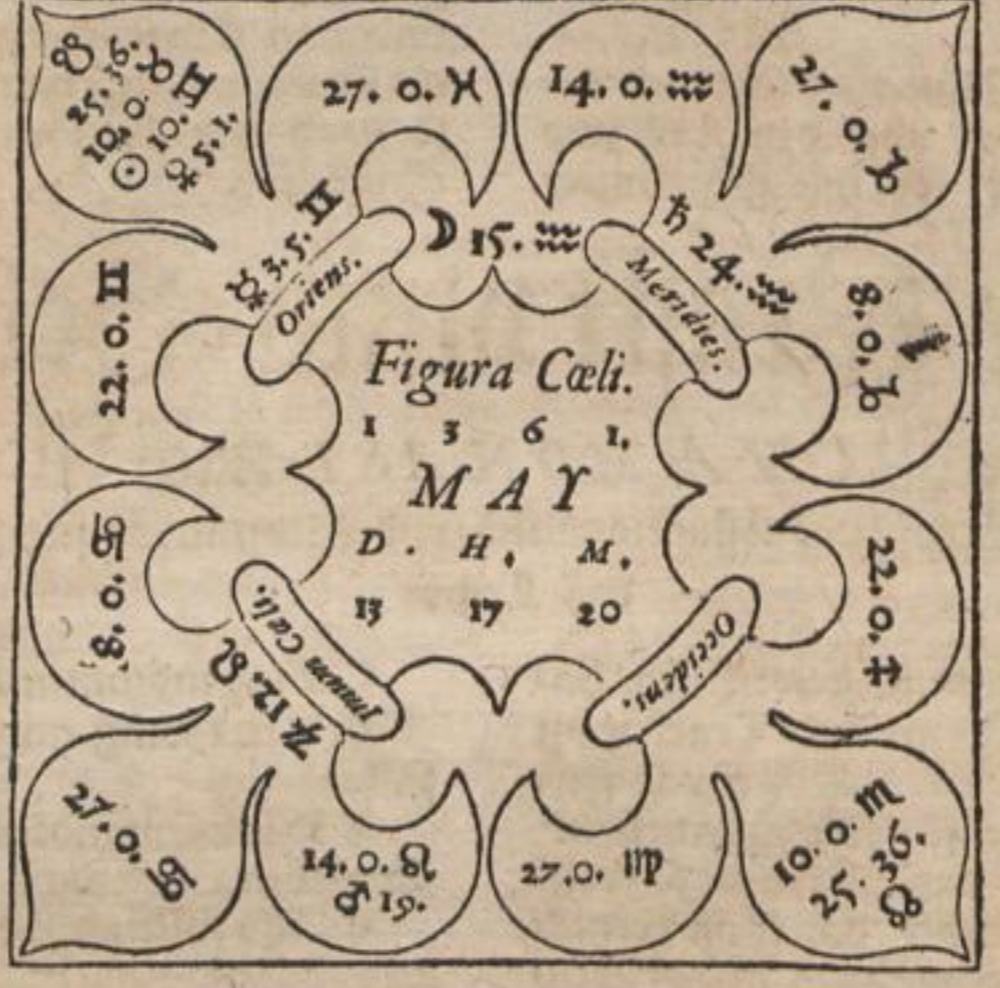 ☋ 25. 36. ♉
10. 0. ♊
☉ 10. 10.
♀ 5. 1.
27. 0. ♓
14. 0. ♒
27. 0. ♑
☿ 3. 5. ♊
Oriens.
☽ 15. ♒
♄ 24. ♒
Meridies.
22. 0. ♊
8. 0. ♑
Figura Cœli.
1 3 6 1.
MAY
D. H. M.
13 17 20
8. 0. ♋
22. 0. ♐
Imum Cœli.
♃ 12. ♌
Occidens.
27. 0. ♋
14. 0. ♌
♂ 19.
27. 0. ♍
10. 0. ♏
25. 36.
☊